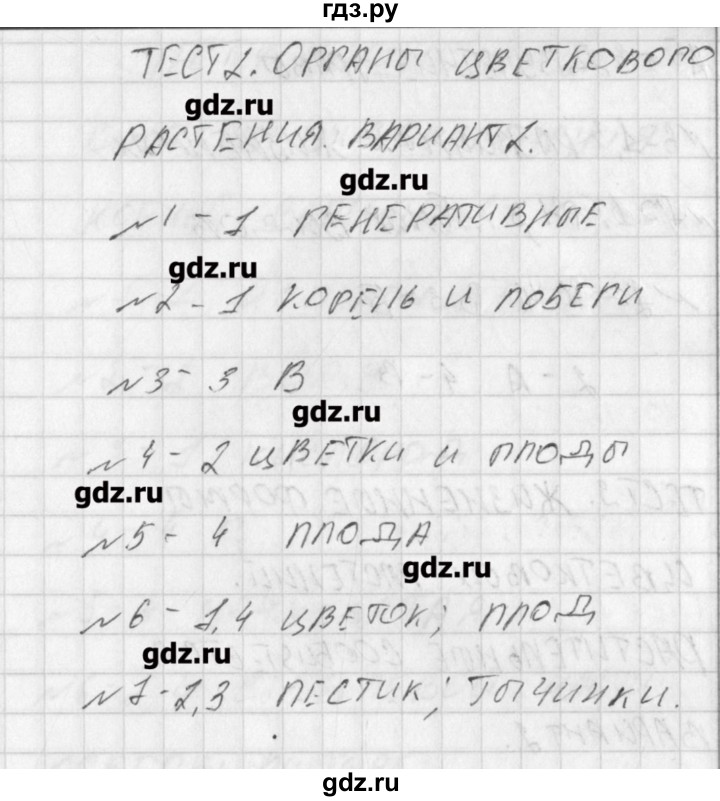 гдз.ру
ТЕСТ 2. ОРГАНЫ ЦВЕТКОВОГО
gdz.ru
РАСТЕНИЯ. ВАРИАНТ 2.
gdz.ru
№1 - 1 ГЕНЕРАТИВНЫЕ
gdz.ru
№2 - 1 КОРЕНЬ И ПОБЕГИ
№3 - 3 В
gdz.ru
№4 - 2 ЦВЕТКИ И ПЛОДЫ
gdz.ru
№5 - 4 ПЛОДА
gdz.ru
№6 - 1,4 ЦВЕТОК; ПЛОД
gdz.ru
№7 - 2,3 ПЕСТИК; ТЫЧИНКИ.
gdz.ru